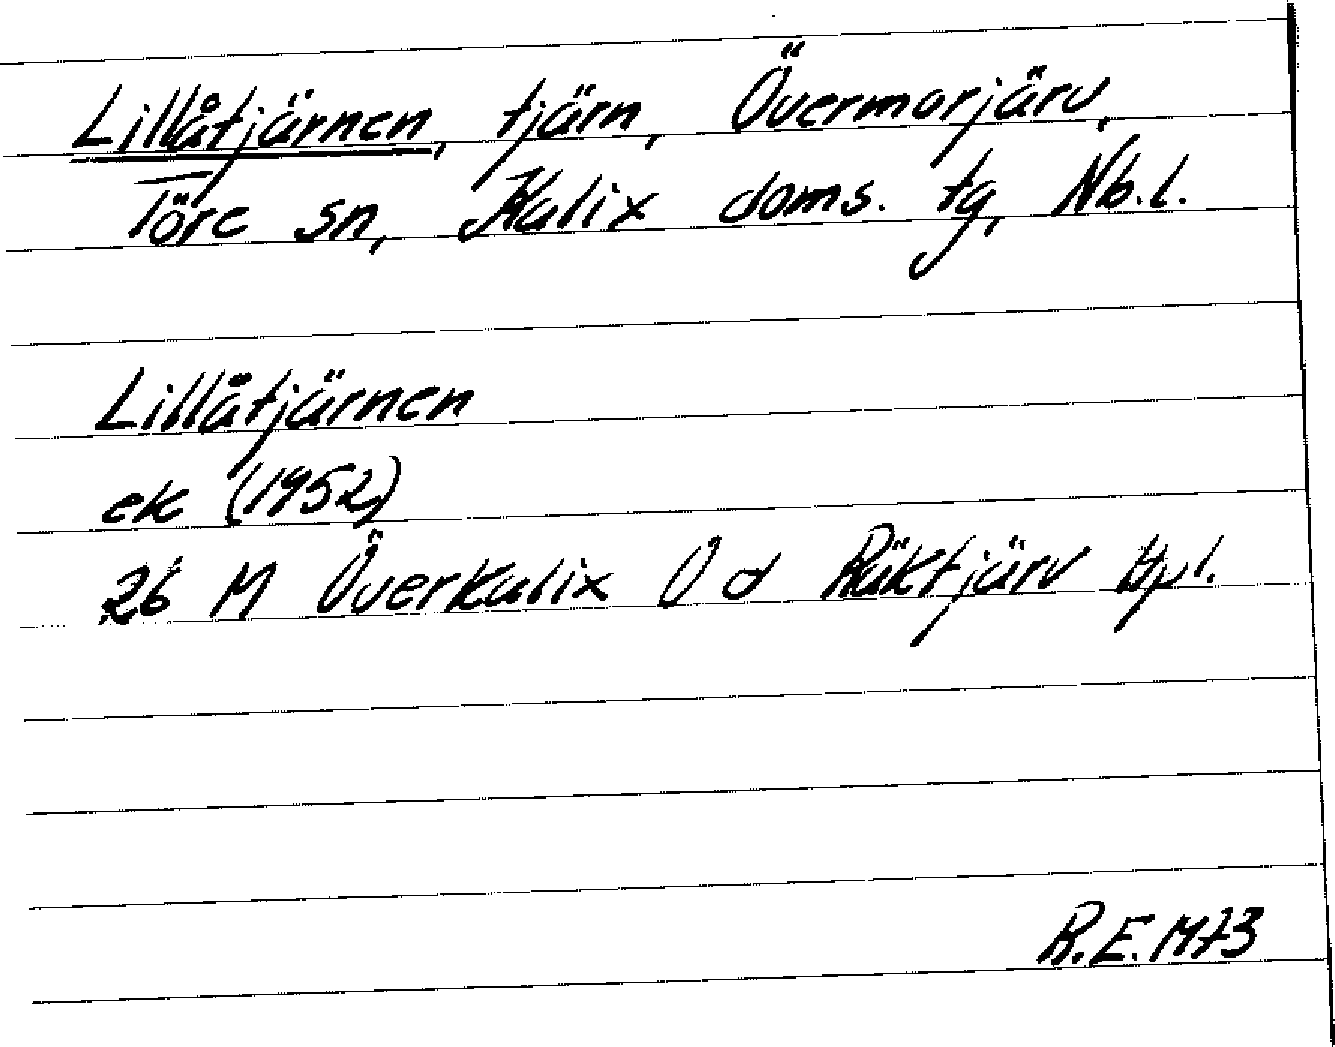 Lillåtjärnen, tjärn, Övermorjärv,
Töre sn, Kalix doms. tg, Nb.l.
Lillåtjärnen
ek (1952)
26 M Överkalix Ö d Räktjärv hpl.
R.E.M73